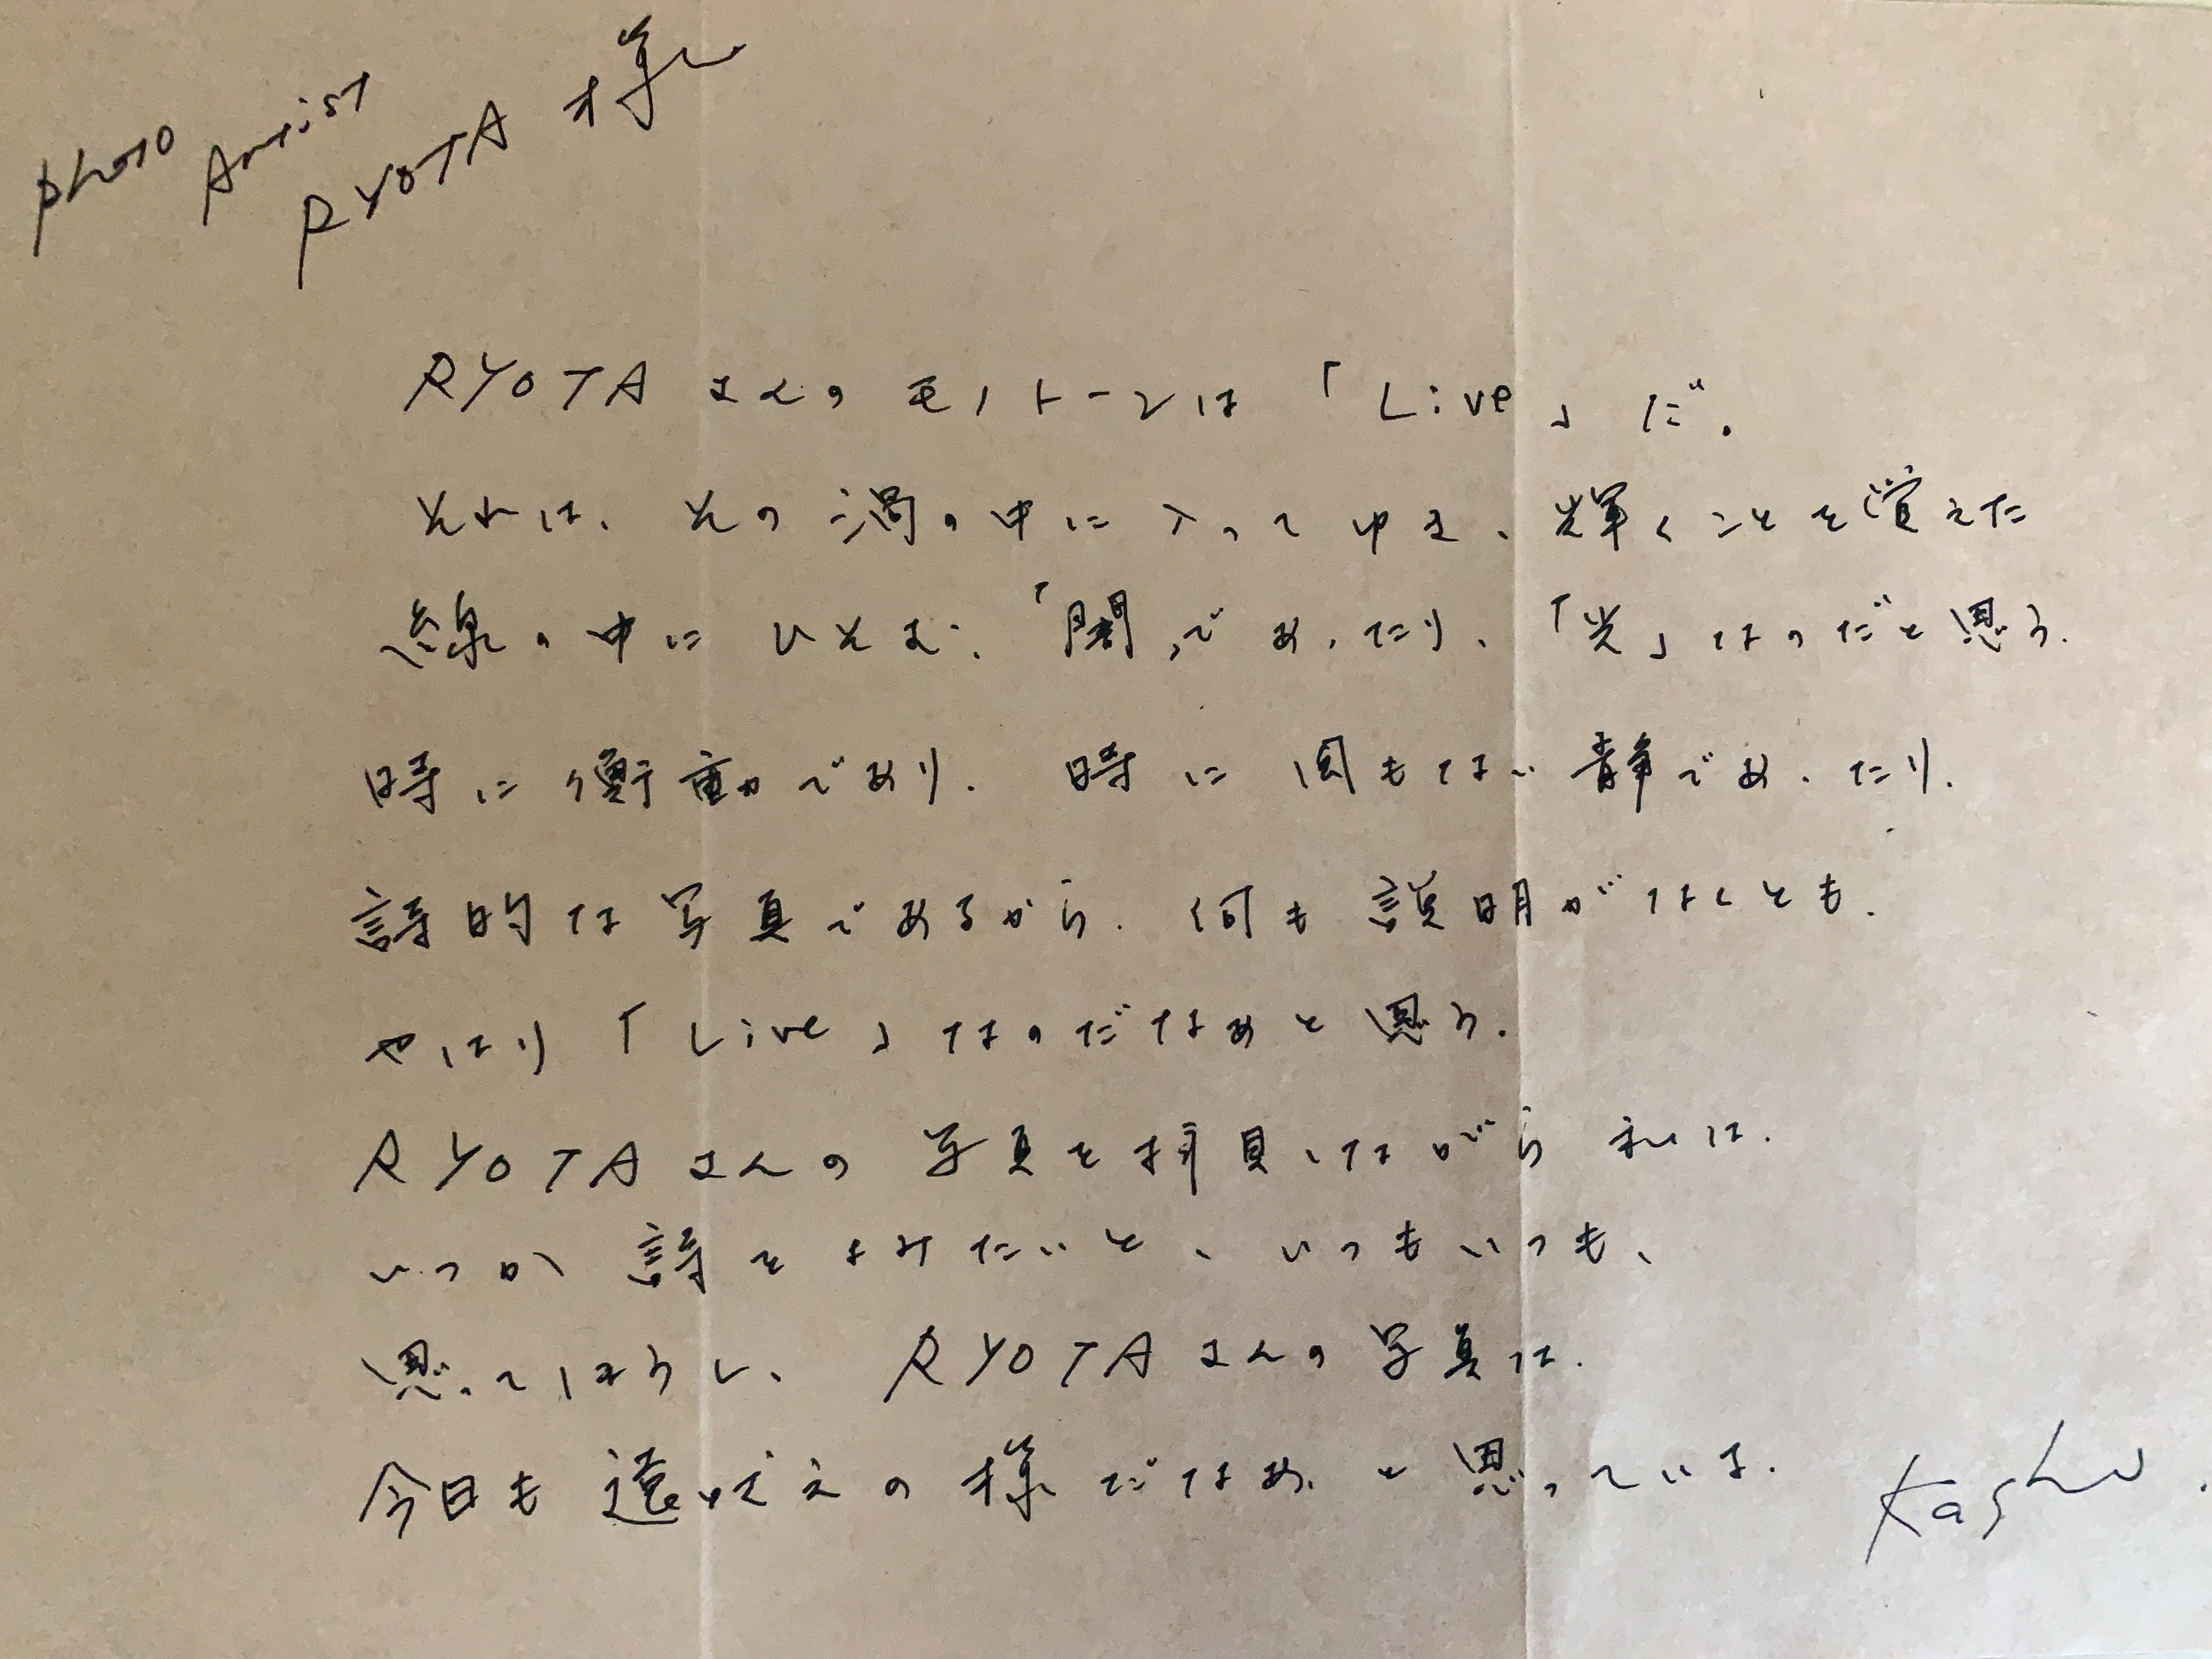 photo Artist
RYOTA 様
RYOTA さんの モノトーンは 「Live」だ。
それは、その渦の中に入ってゆき、輝くことを覚えた
線の中に ひそむ、「闇」であったり、「光」なのだと思う。
時に衝動であり、時に 何もない静であったり、
詩的な写真であるから、何も説明がなくとも、
やはり「Live」なのだなぁと思う。
RYOTA さんの 写真を拝見しながら 私は、
いつか 詩をよみたいと、いつもいつも、
思ってしまうし、RYOTA さんの写真は、
今日も 遠吠えの様だなぁ、と思っている。
Kashu.